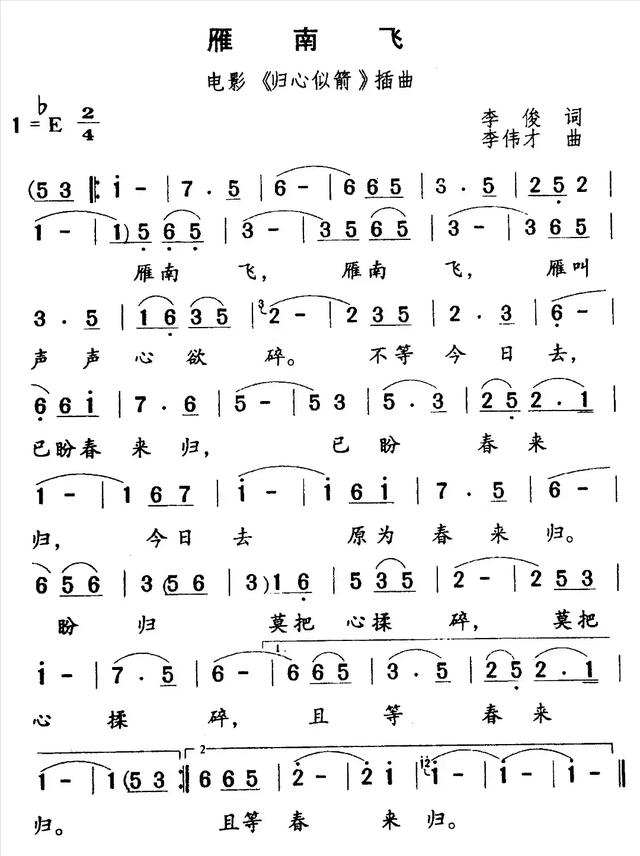 雁 南 飞
电影《归心似箭》插曲
1=♭E 2/4
李 俊 词
李伟才 曲
(5 3 ‖: i - | 7 . 5 | 6 - | 6 6 5 | 3 . 5 | 2 5 2 |
1 - | 1) 5 6 5 | 3 - | 3 5 6 5 | 3 - | 3 6 5 |
雁南 飞, 雁南 飞, 雁叫
3 . 5 | 1 6 3 5 | 3 2 - | 2 3 5 | 2 . 3 | 6 - |
声 声 心 欲 碎。 不等 今 日 去,
6 6 i | 7 . 6 | 5 - | 5 3 | 5 . 3 | 2 5 2 . 1 |
已盼春 来 归, 已 盼 春 来
1 - | 1 6 7 | 6 - | i 6 i | 7 . 5 | 6 - |
归, 今日 去 原为 春 来 归。
6 5 6 | 3 (5 6 | 3) 1 6 | 5 3 5 | 2 - | 2 3 5 |
盼 归 莫把 心揉 碎, 莫把
i - | 7 . 5 | 6 - | 1. 6 6 5 | 3 . 5 | 2 5 2 . 1 |
心 揉 碎, 且 等 春 来
1 - | 1 (5 3 :‖ 2 6 6 5 | 2 - | 2 i | i2 i - | i - ‖
归。 且等 春 来 归。